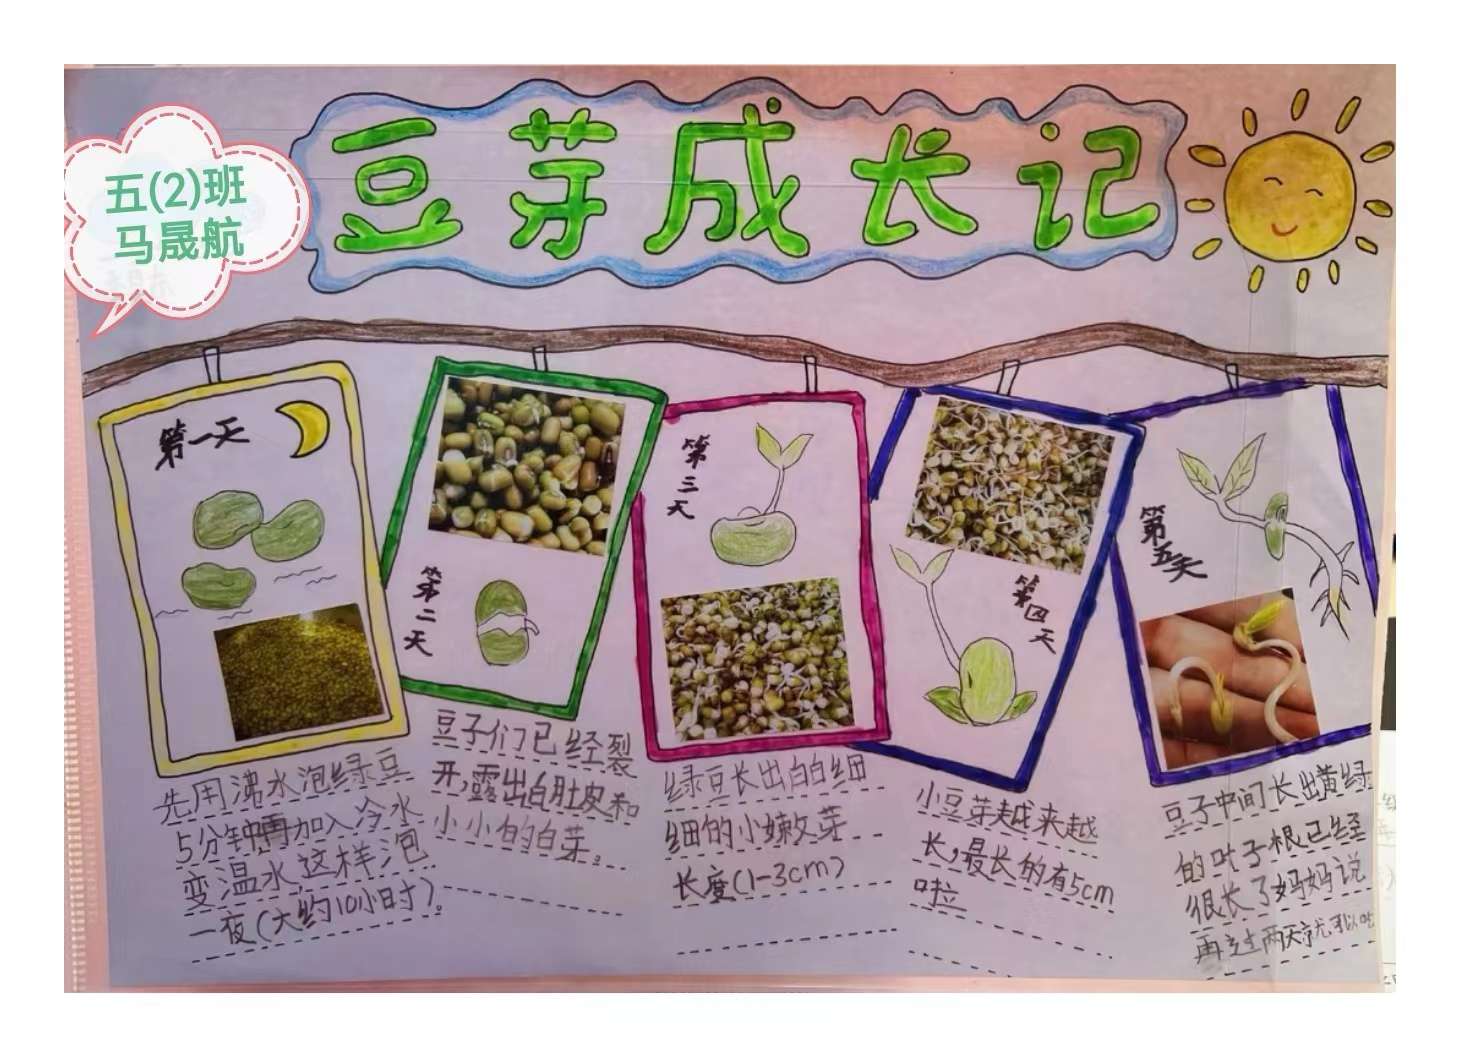 豆芽成长记
五(2)班
马晟航
第一天
先用沸水泡绿豆
5分钟再加入冷水
变温水这样泡
一夜(大约10小时)。
第二天
豆子们已经裂
开,露出白肚皮和
小小的白芽。
第三天
绿豆长出白白细
细的小嫩芽
长度(1-3cm)
第四天
小豆芽越来越
长,最长的有5cm
啦
第五天
豆子中间长出黄绿
的叶子根已经
很长了妈妈说
再过两天就可以吃